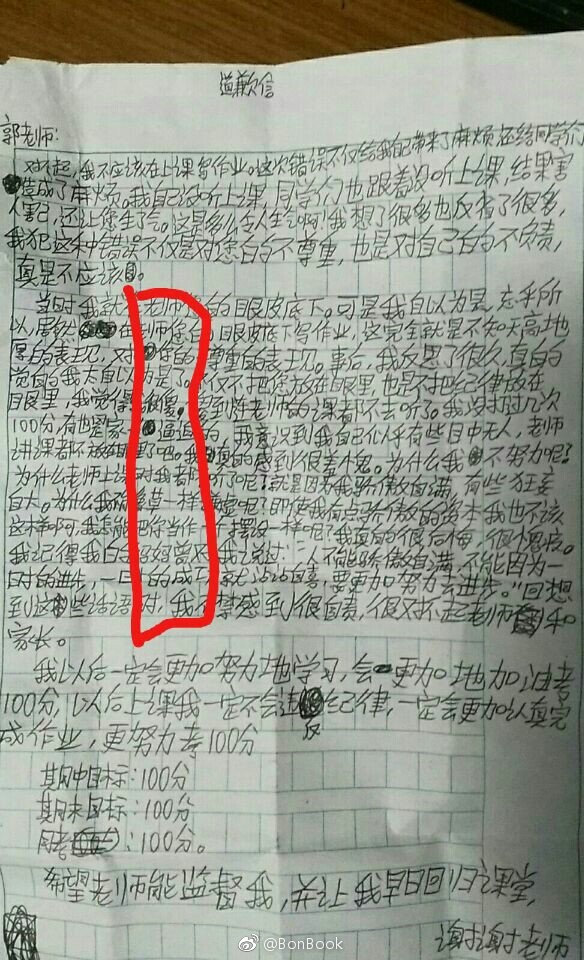 道歉信
郭老师:
对不起,我不应该在上课写作业。这次错误不仅给我自己带来了麻烦,还给同学们
造成了麻烦。我自己没听上课,同学们也跟着没听上课,结果害
人害己,还让您生气。这是多么令人生气啊!我想了很多也反省了很多,
我犯这种错误不仅是对您的不尊重,也是对自己的不负责,
真是不应该。
当时我就在老师您的眼皮底下。可是我自以为是,忘乎所
以,居然在老师您的眼皮底下写作业,这完全就是不知天高地
厚的表现,对您的不尊重的表现。事后,我反思了很久,真的
觉的我太自以为是了。不仅不把您放在眼里,也是不把纪律放在
眼里,我觉得我很傻。老师的课都不去听了。我没打过几次
100分,有也是家逼迫的,我意识到我自己似乎有些目中无人,老师
讲课都不放了吧。我真的感到很羞愧。为什么我不努力呢?
为什么老师上课时我都不听了呢?就是因为我骄傲自满,有些狂妄
自大。为什么我草一样呢?即使我有点骄傲的资本我也不该
这样啊,我怎能把你当作一个摆设一样呢?我真的很后悔,很愧疚。
我记得我的妈妈曾对我说过:"人不能骄傲自满,不能因为一
时的进步,一时的成功就沾沾自喜,要更加努力去进步。"回想
到这些话语时,我不禁感到很自责,很对不起老师和
家长。
我以后一定会更加努力地学习,会更加地加油考
100分,以后上课我一定不会违反纪律,一定会更加认真完
成作业,更努力考100分
期中目标:100分
期末目标:100分
周考:100分。
希望老师能监督我,并让我早日回归课堂,
谢谢老师
@BonBook